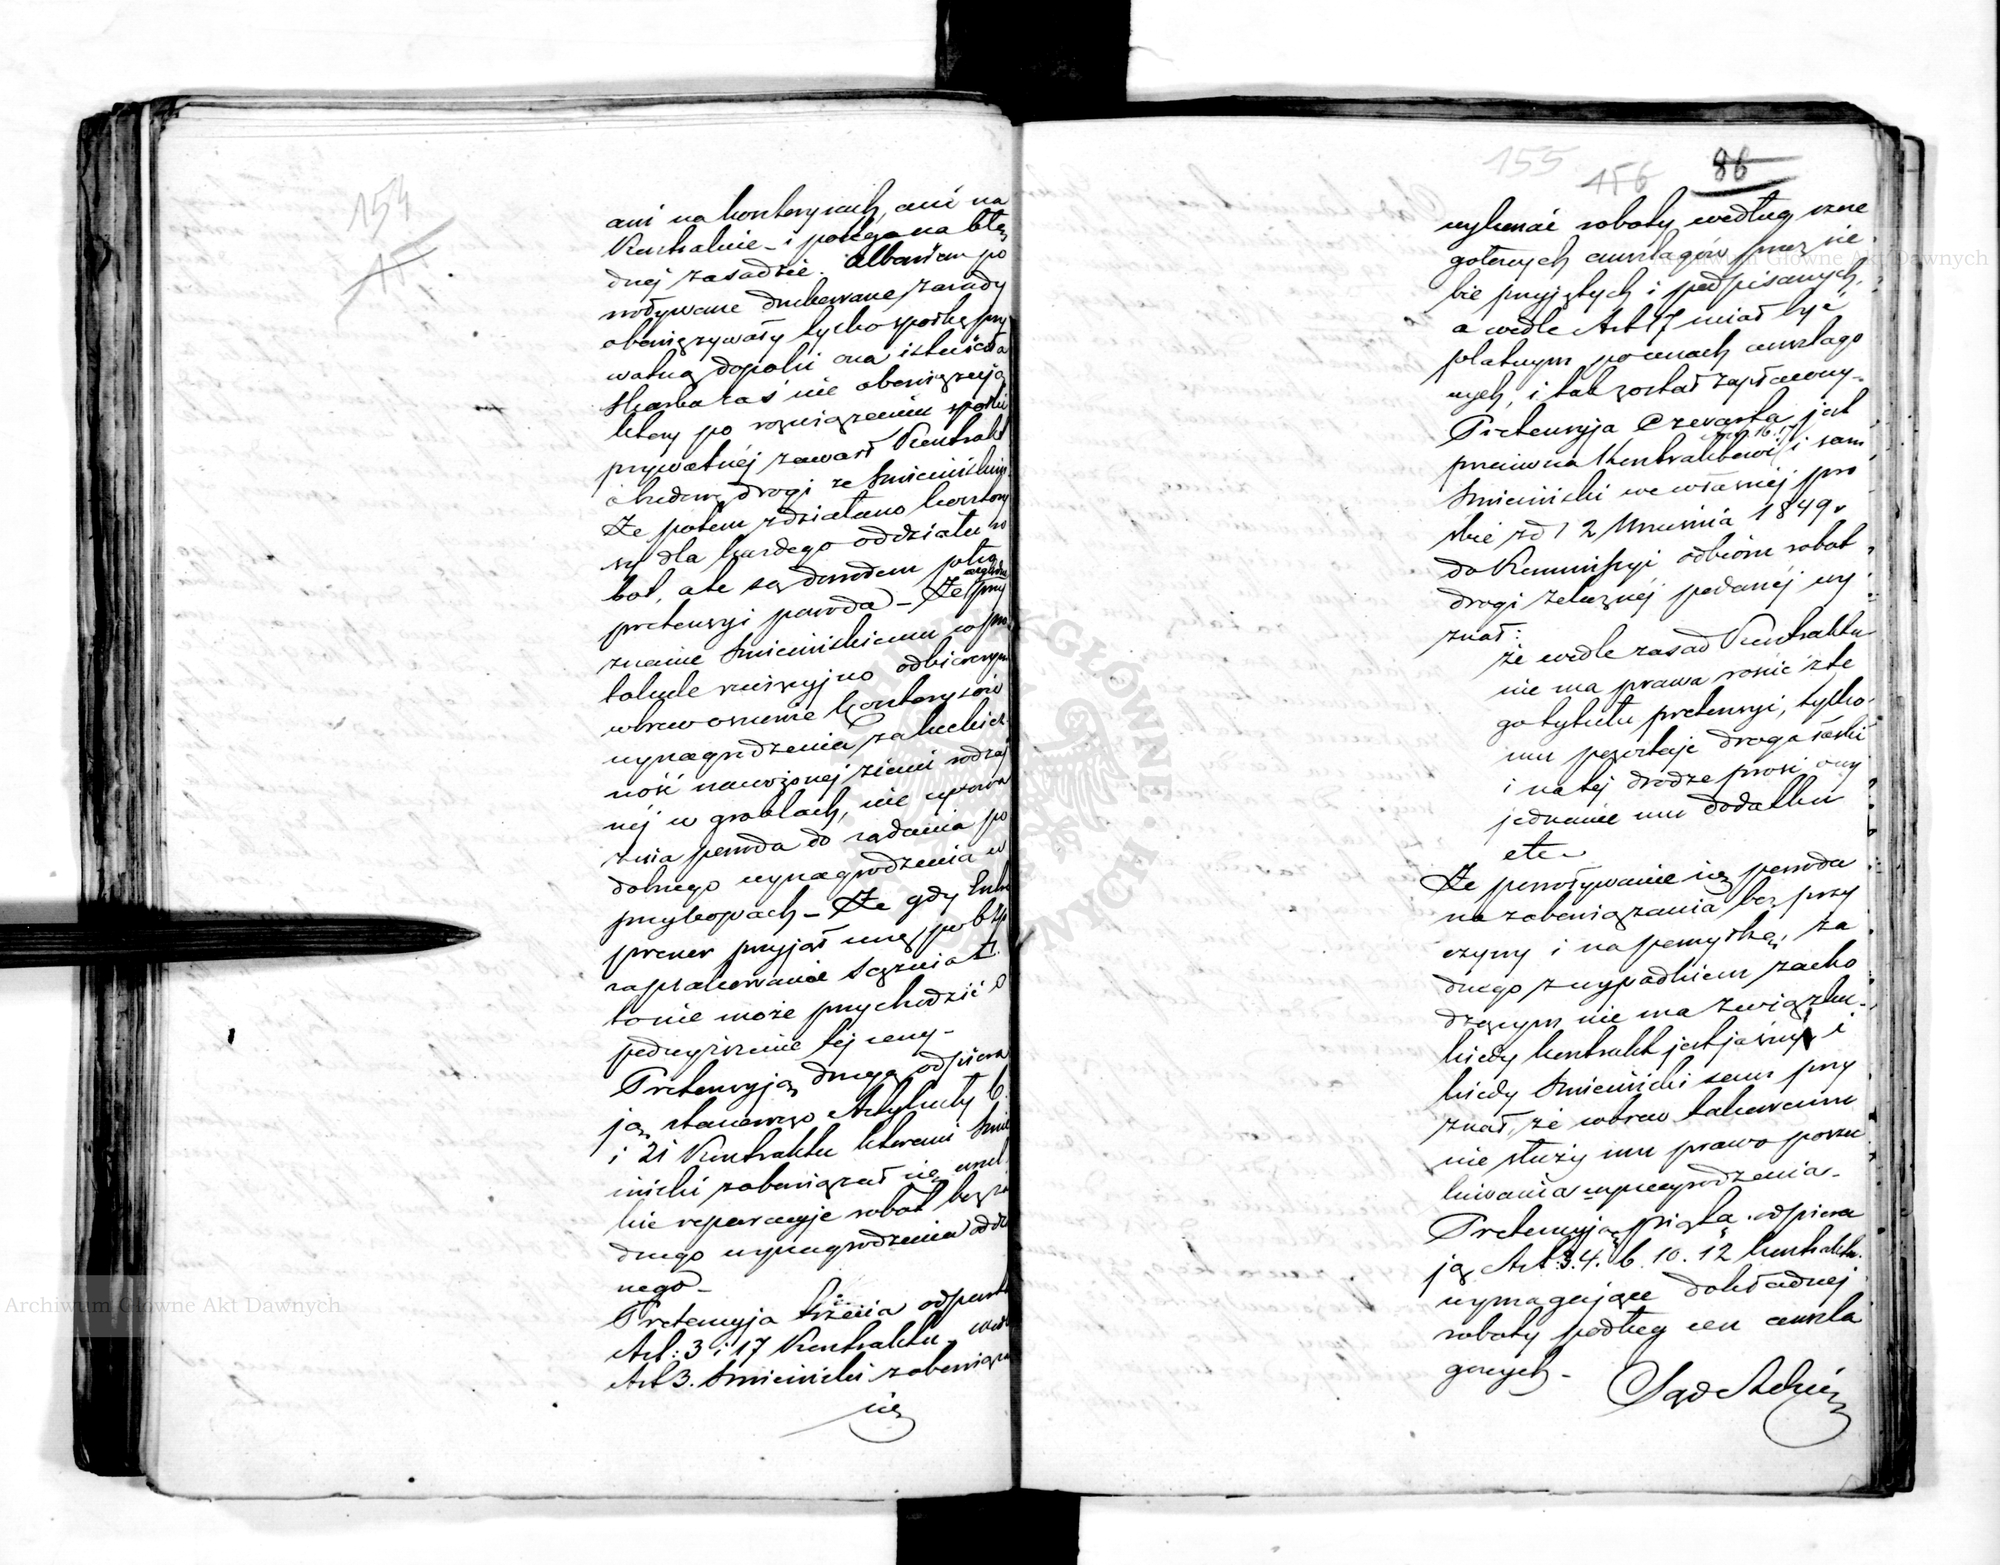 154
ani na kosztorysach, ani na
Kontrakcie – i polega na błę
dnej zasadzie. Albowiem po
woływane drukowane zasady
obowiązywały tylko spółkę pry
watną dopóki ona istniała
Skarbu zaś nie obowiązują
który po rozwiązaniu spółki
prywatnej zawarł Kontrakt
o budowę drogi ze Smiecińskim.
Że potem zdziałano kosztory
sy dla każdego oddziału ro
bot, ale są dowodem
pretensyi powoda – Że względne przy
znanie Smiecińskiemu w pro
tokule rewizyjno odbiorczym
wbrew osnowie kosztorysów
wynagrodzenia za
ność nawożonej ziemi rodzaj
nej w groblach, nie upowa
żnia powoda do żądania po
dobnego wynagrodzenia w
przykopach – Że gdy Entre
prener przyjął cenę, po kop
za plantowanie sążnia
to nie może przychodzić o
podwyższenie tej ceny –
Pretensyją drugą odpiera
ją stanowczo Artykuły 6.
i 21 Kontraktu któremi Smie
ciński zobowiązał się wszel
kie reparacyje robot bez ża
dnego wynagrodzenia
nego –
Pretensyja trzecia odparta
Art: 3 i 17 Kontraktu,
Art 3. Smieciński zobowiązał
się
155
156
86
wykonać roboty według szcze
gołowych anszlagów przez sie
bie przyjętych i podpisanych,
a wedle Art 17 miał być
płatnym po cenach anszlago
wych, i tak został zapłacony –
Pretensyja czwarta jest
przeciwna Kontraktowi i sam
Smieciński we własnej pro
śbie z d 12 Września 1849 r
do Kommissyi odbioru robot
drogi żelaznej podanej wy
znał:
że wedle zasad Kontraktu
nie ma prawa rościć z te
go tytułu pretensyi, tylko
mu pozostaje droga łaski
i na tej drodze prosi o wy
jednanie mu dodatku
etc –
Że powoływanie się powoda
na zobowiązania bez przy
czyny i na pomyłkę, ża
dnego z wypadkiem zacho
dzącym nie ma związku
kiedy kontrakt jest jasny i
kiedy Smieciński sam przy
znał, że wbrew takowemu
nie służy mu prawo poszu
kiwania wynagrodzenia –
Pretensyją piątą odpiera
ją Art: 3. 4. 6. 10. 12 kontraktu
wymagające dokładnej
roboty podług cen anszla
gowych –
Sąd
Archiwum Główne Akt Dawnych
Archiwum Główne Akt Dawnych